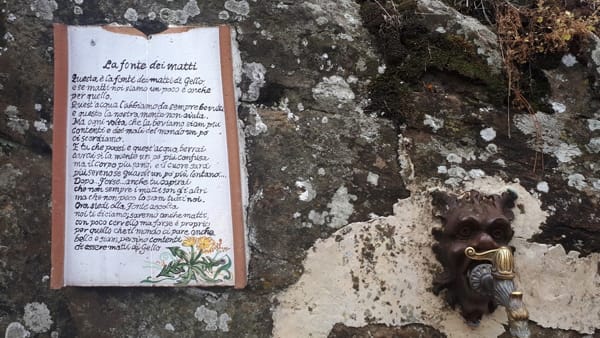 La fonte dei matti
Questa, è la fonte dei matti di Gello,
e se matti noi siamo un poco è anche
per quello.
Quest'acqua l'abbiamo da sempre bevuta
e questo la nostra mente non aiuta.
Ma ogni volta, che la beviamo siam più
contenti e dei mali del mondo un po
ci scordiamo.
E tu che passi e quest'acqua berrai
avrai si la mente un po più confusa
ma il corpo più sano, e il cuore sarà
più sereno se guardi un po più lontano...
Dopo forse... anche tu capirai
che non sempre i matti son gli altri
ma che non poco lo siam tutti noi.
Ora siedi alla fonte ascolta
noi ti diciamo, saremo anche matti,
con poco cervello ma forse è proprio
per quello che il mondo ci pare anche
bello e siam persino contenti
di essere matti di Gello